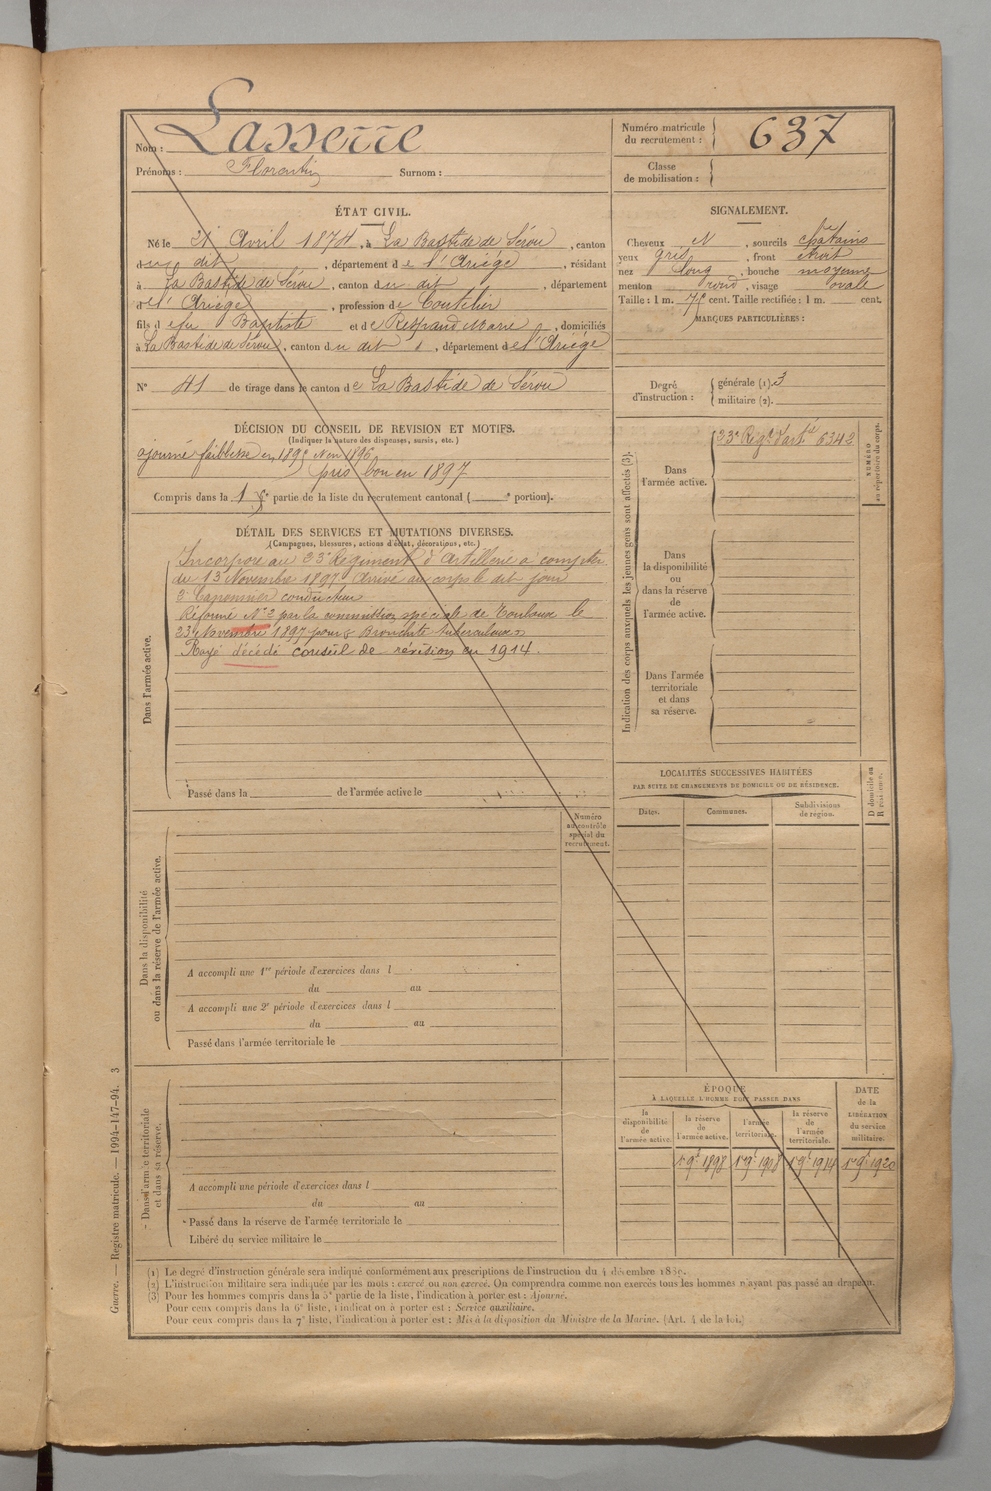 Nom : Lasserre
Prénoms : Florentin Surnom :
Numéro matricule
du recrutement : 637
Classe
de mobilisation :
ÉTAT CIVIL.
Né le 21 Avril 1874, à La Bastide de Sérou, canton
du dit, département de l'Ariége, résidant
à La Bastide de Sérou, canton du dit, département
de l'Ariége, profession de
fils de feu Baptiste et de Respaud Marie, domiciliés
à La Bastide de Sérou, canton du dit, département de l'Ariége
N° 41 de tirage dans le canton de La Bastide de Sérou
SIGNALEMENT.
Cheveux et, sourcils châtains
yeux gris, front étroit
nez long, bouche moyenne
menton rond, visage ovale
Taille : 1 m. cent. Taille rectifiée : 1 m. cent.
MARQUES PARTICULIÈRES :
Degré
d'instruction :
générale (1). 3
militaire (2).
DÉCISION DU CONSEIL DE REVISION ET MOTIFS.
(Indiquer la nature des dispenses, sursis, etc.)
ajourné faiblesse en 1895 1896
pris bon en 1897
Compris dans la partie de la liste du recrutement cantonal ( e portion).
DÉTAIL DES SERVICES ET MUTATIONS DIVERSES.
(Campagnes, blessures, actions d'éclat, décorations, etc.)
Dans l'armée active.
Incorporé au 23e Régiment d'Artillerie à compter
du 13 Novembre 1897 arrivé au corps le dit jour
2e Canonnier conducteur
Réformé N° 2 par la commission spéciale de Toulouse le
23 Novembre 1897 pour Bronchite tuberculeuse
Rayé décédé conseil de révision en 1914.
Passé dans la de l'armée active le
Indication des corps auxquels les jeunes gens sont affectés (3).
Dans
l'armée active.
23e Régt d'artie 6342
NUMÉRO
au répertoire du corps.
Dans
la disponibilité
ou
dans la réserve
de
l'armée active.
Dans l'armée
territoriale
et dans
sa réserve.
LOCALITÉS SUCCESSIVES HABITÉES
PAR SUITE DE CHANGEMENTS DE DOMICILE OU DE RÉSIDENCE.
Dates.
Communes.
Subdivisions
de région.
D domicile ou
R résidence.
Numéro
au contrôle
spécial du
recrutement.
Dans la disponibilité
ou dans la réserve de l'armée active.
A accompli une 1re période d'exercices dans l
du au
A accompli une 2e période d'exercices dans l
du au
Passé dans l'armée territoriale le
Dans l'armée territoriale
et dans sa réserve.
A accompli une période d'exercices dans l
du au
Passé dans la réserve de l'armée territoriale le
Libéré du service militaire le
ÉPOQUE
À LAQUELLE L'HOMME DOIT PASSER DANS
la
disponibilité
de
l'armée active.
la réserve
de
l'armée active.
l'armée
territoriale.
la réserve
de
l'armée
territoriale.
DATE
de la
LIBÉRATION
du service
militaire.
1er 9bre 1898 1er 9bre 1908 1er 9bre 1914 1er 9bre 1920
(1) Le degré d'instruction générale sera indiqué conformément aux prescriptions de l'instruction du 4 décembre
(2) L'instruction militaire sera indiquée par les mots : exercé ou non exercé. On comprendra comme non exercés tous les hommes n'ayant pas passé au drapeau.
(3) Pour les hommes compris dans la 5e partie de la liste, l'indication à porter est : Ajourné.
Pour ceux compris dans la 6e liste, l'indication à porter est : Service auxiliaire.
Pour ceux compris dans la 7e liste, l'indication à porter est : Mis à la disposition du Ministre de la Marine. (Art. 4 de la loi.)
Guerre. — Registre matricule. — 1994-147-94. 3